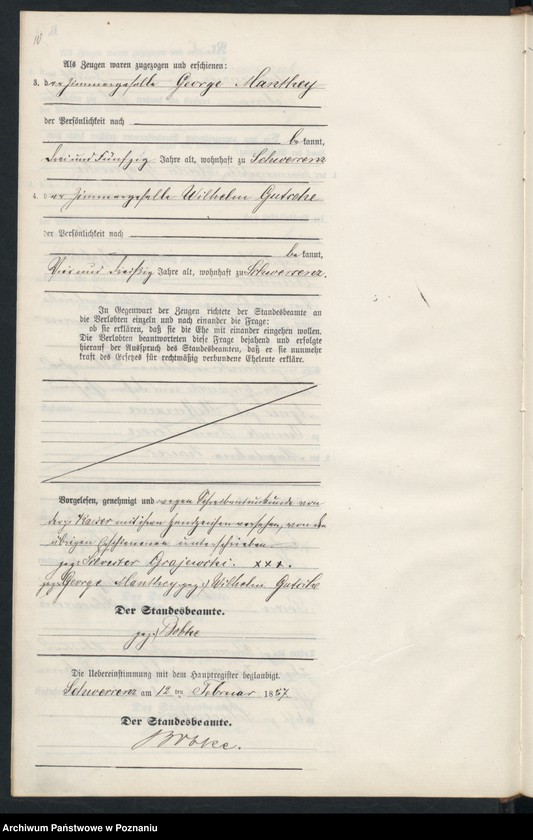 Als Zeugen waren zugezogen und erschienen:
3. der Zimmergeselle George Manthey
der Persönlichkeit nach
be kannt,
drei und fünfzig Jahre alt, wohnhaft zu Schwersenz
4. der Zimmergeselle Wilhelm Gutsche
der Persönlichkeit nach
be kannt,
vier und dreißig Jahre alt, wohnhaft zu Schwersenz.
In Gegenwart der Zeugen richtete der Standesbeamte an
die Verlobten einzeln und nach einander die Frage:
ob sie erklären, daß sie die Ehe mit einander eingehen wollen.
Die Verlobten beantworteten diese Frage bejahend und erfolgte
hierauf der Ausspruch des Standesbeamten, daß er sie nunmehr
kraft des Gesetzes für rechtmäßig verbundene Eheleute erkläre.
Vorgelesen, genehmigt und wegen Schreibensunkunde von
der p. Kaiser mit ihren Handzeichen versehen, von den
übrigen Erschienenen unterschrieben.
gez. Silvester Grajewski. xxx.
gez. George Manthey gez.) Wilhelm Gutsche
Der Standesbeamte.
gez) Bobke
Die Uebereinstimmung mit dem Hauptregister beglaubigt.
Schwersenz am 12 ten Februar 1887.
Der Standesbeamte.
Bobke.
Archiwum Państwowe w Poznaniu